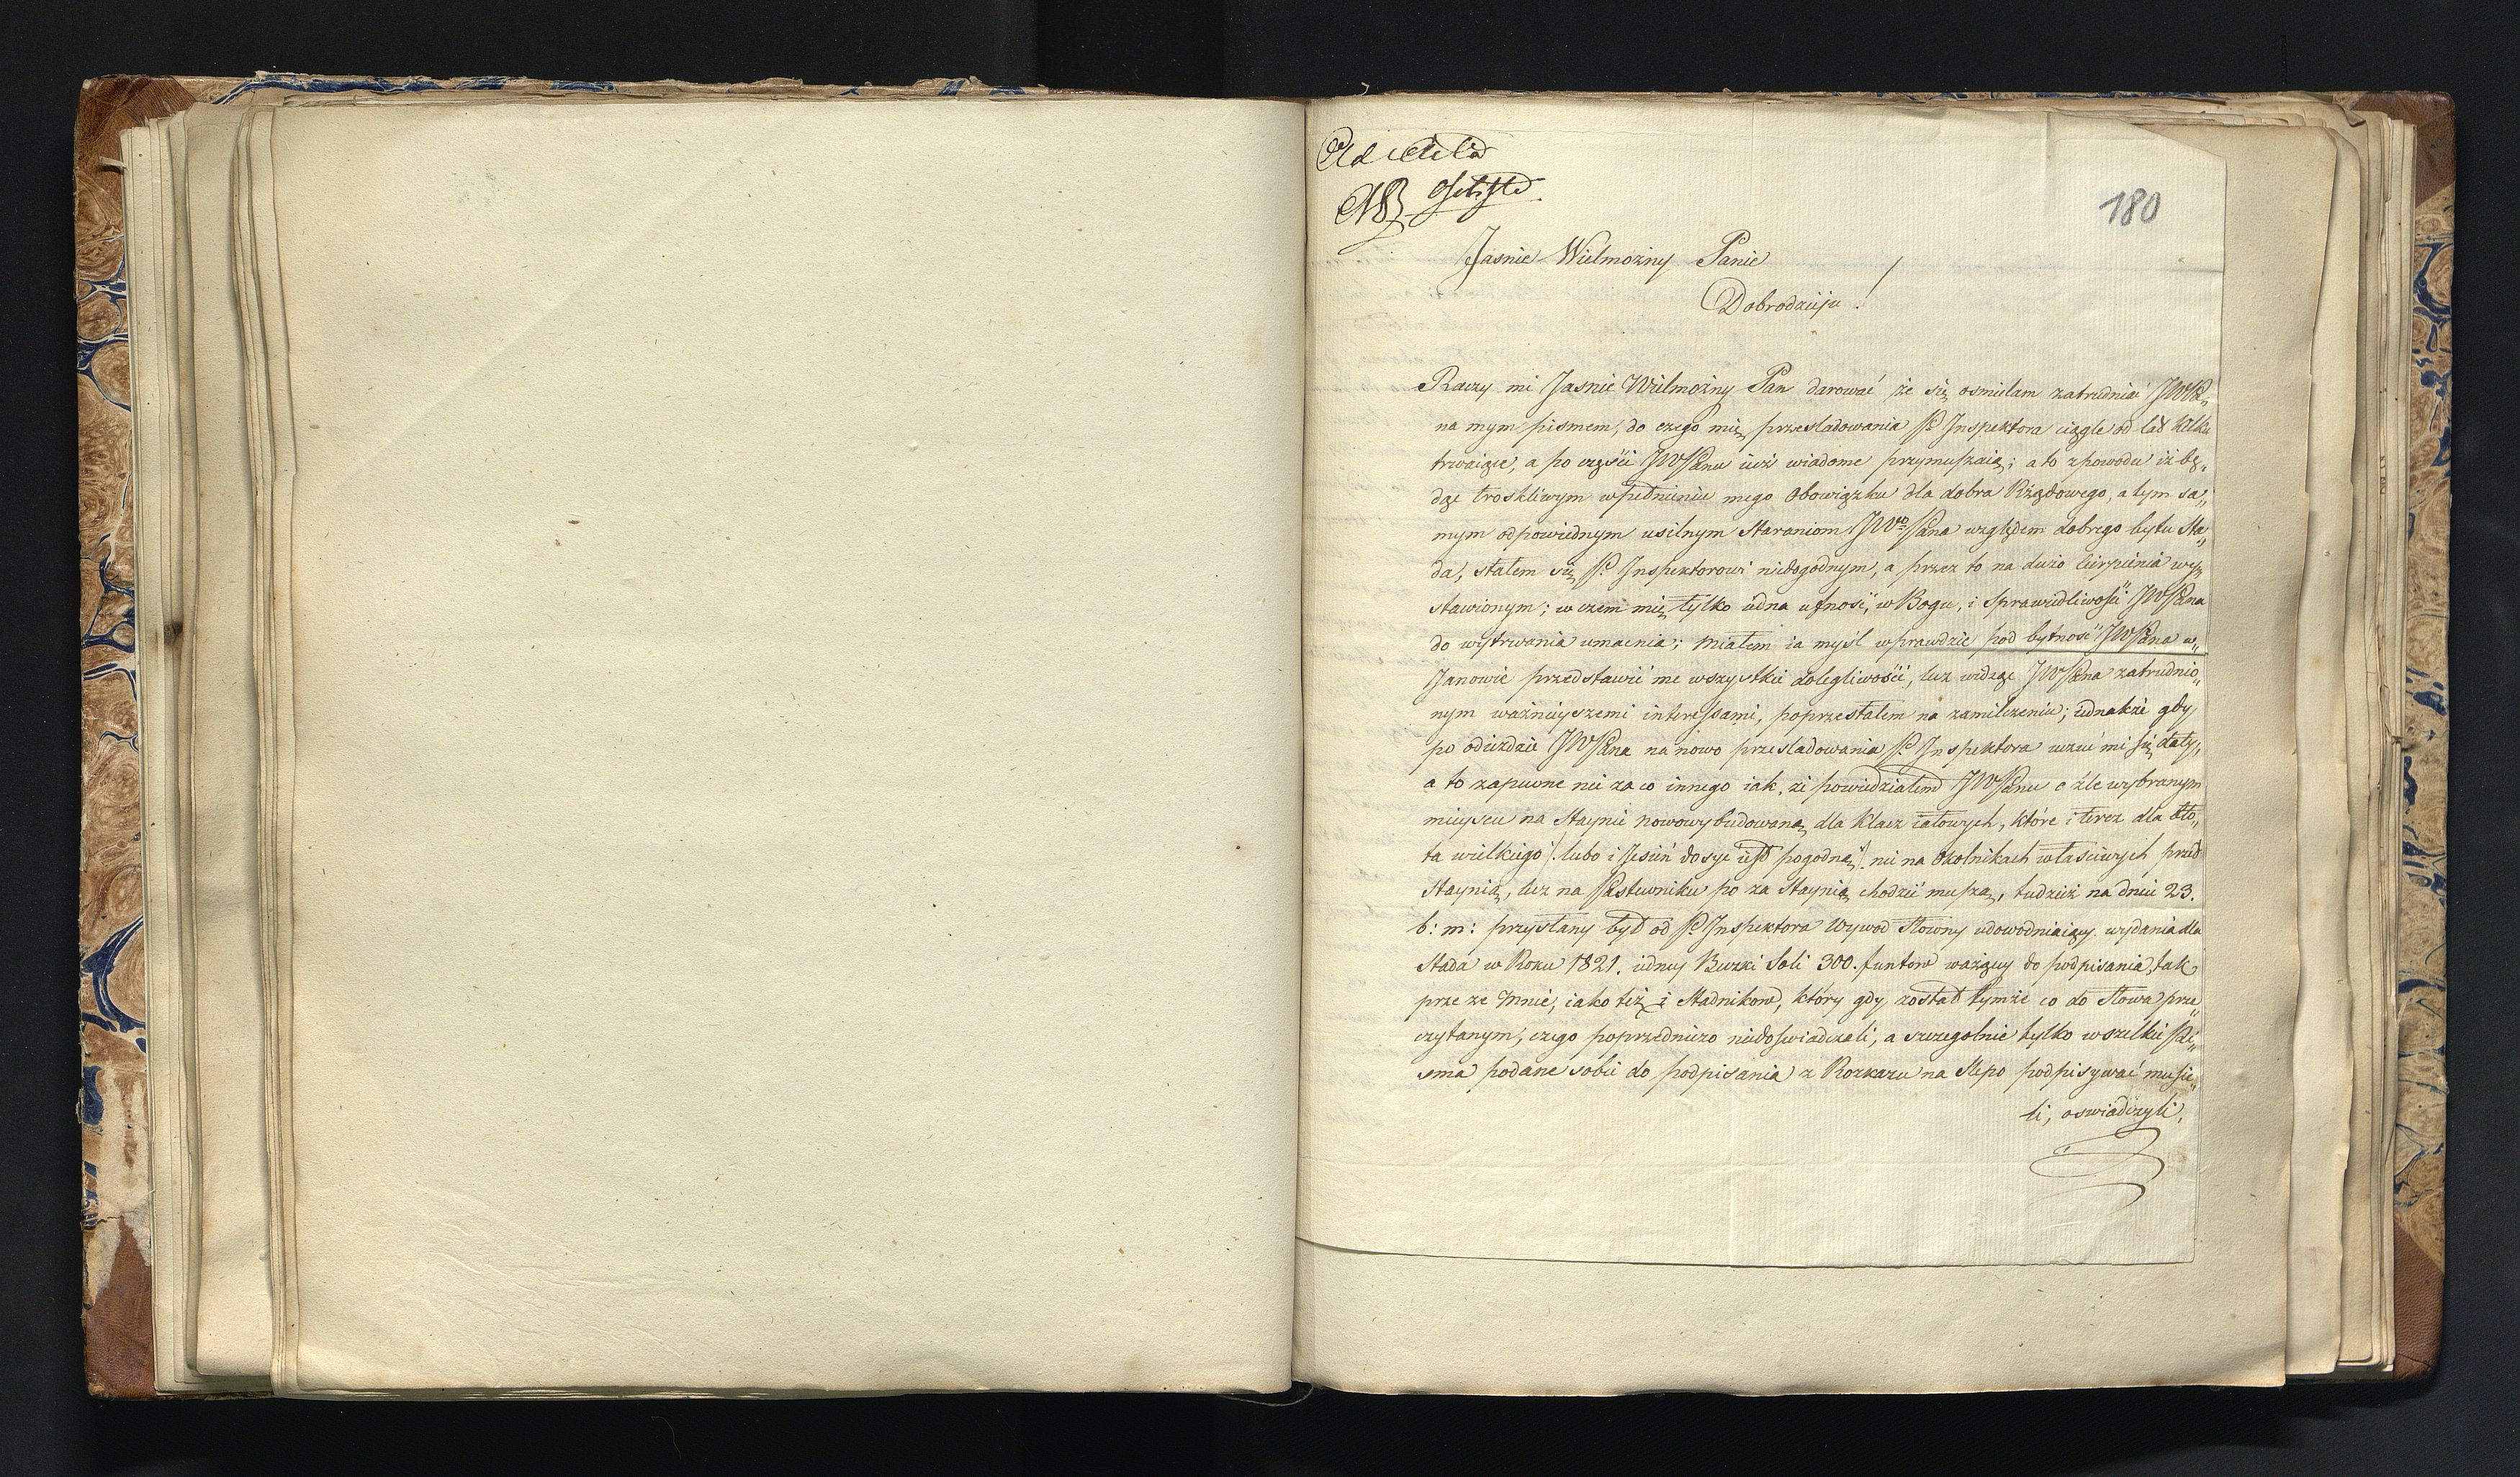 Ad Acta
180
Jasnie Wielmożny Panie
Dobrodzieju!
Raczy mi Jasnie Wielmożny Pan darować że się osmielam zatrudniać JWPa„
na mym pismem, do czego mię przesladowania P. Inspektora ciągle od lat kilku
trwaiące, a po części JWPanu iuż wiadome przymuszaią; a to z powodu iż bę„
dąc troskliwym w pełnieniu mego Obowiązku dla dobra Rządowego, a tym sa„
mym odpowiednym usilnym Staraniom JWo Pana względem dobrego bytu Sta„
da, stałem się P. Inspektorowi niedogodnym, a przez to na dużo cierpienia wy„
stawionym; w czem mię tylko iedna ufność, w Bogu, i Sprawiedliwości JWPana
do wytrwania umacnia; miałem ia myśl wprawdzie pod bytność JWPana w„
Janowie przedstawić me wszystkie dolegliwości, lecz widząc JWPana zatrudnio„
nym ważnieyszemi interessami, poprzestałem na zamilczeniu; iednakże gdy
po odieździe JWPana na nowo przesladowania P. Inspektora uczuć mi się dały„
a to zapewne nie za co innego iak, że powiedziałem JWPanu o źle wybranym
mieyscu na Staynie nowowybudowaną dla Klacz iałowych, które i teraz dla bło„
ta wielkiego /. lubo i Jesień dosyć iest pogodną ./ nie na Okolnikach właściwych przed
Staynią, lecz na Pastewniku po za Staynią chodzić muszą, tudzież na dniu 23.
b: m: przysłany był od P. Inspektora Wywod Słowny udowodniaiący wydania dla
Stada w Roku 1821. iedney Beczki Soli 300. funtow ważącey do podpisania, tak
prze ze Mnie, iako też i Stadnikow, który gdy został tymże co do Słowa prze„
czytanym, czego poprzedniczo niedoswiadczali, a szczegolnie tylko wszelkie Pi„
sma podane sobie do podpisania z Rozkazu na slepo podpisywać musie„
li, oswiadczyli,